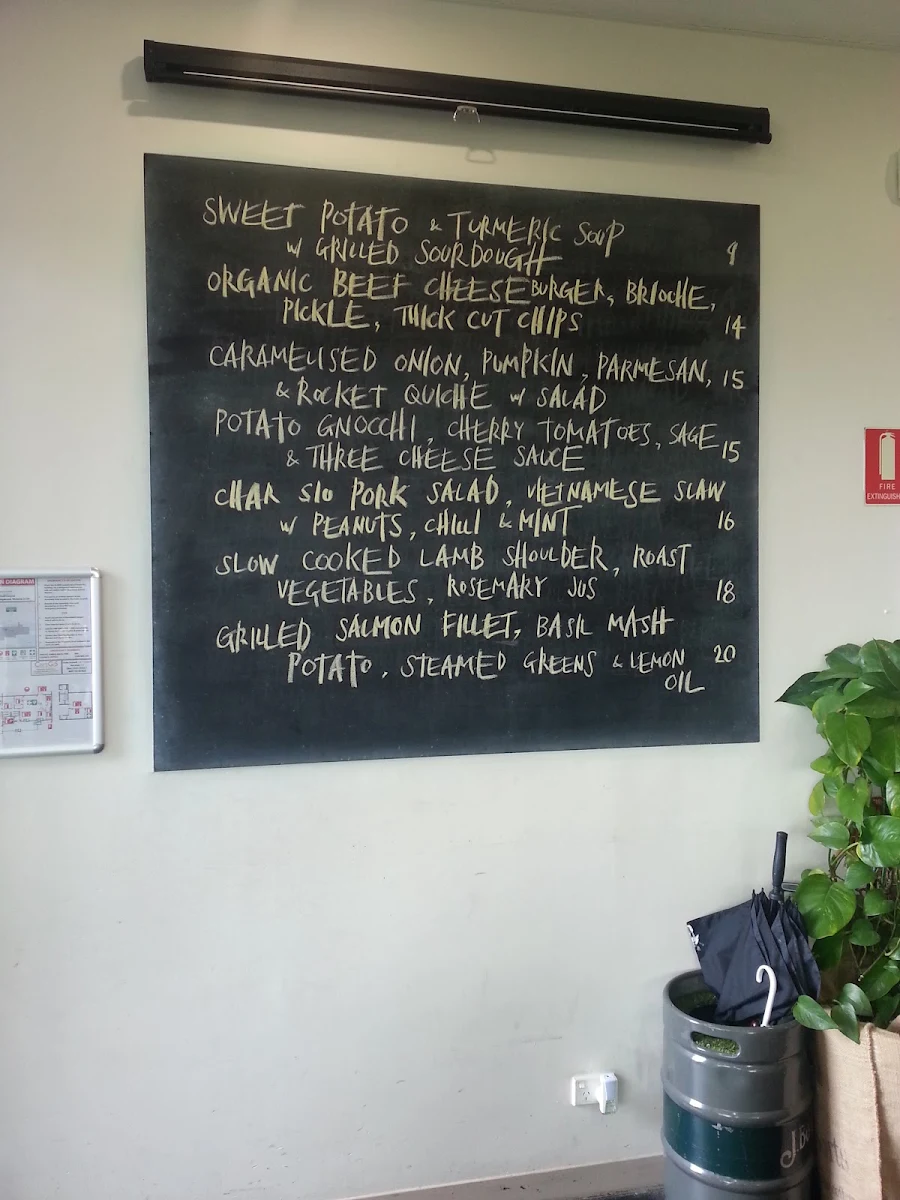 SWEET POTATO & TURMERIC SOUP
W GRILLED SOURDOUGH 9
ORGANIC BEEF CHEESEBURGER, BRIOCHE,
PICKLE, THICK CUT CHIPS 14
CARAMELISED ONION, PUMPKIN, PARMESAN, 15
& ROCKET QUICHE W SALAD
POTATO GNOCCHI, CHERRY TOMATOES, SAGE
& THREE CHEESE SAUCE 15
CHAR SIU PORK SALAD, VIETNAMESE SLAW
W PEANUTS, CHILLI & MINT 16
SLOW COOKED LAMB SHOULDER, ROAST
VEGETABLES, ROSEMARY JUS 18
GRILLED SALMON FILLET, BASIL MASH
POTATO, STEAMED GREENS & LEMON 20
OIL
FIRE
DIAGRAM